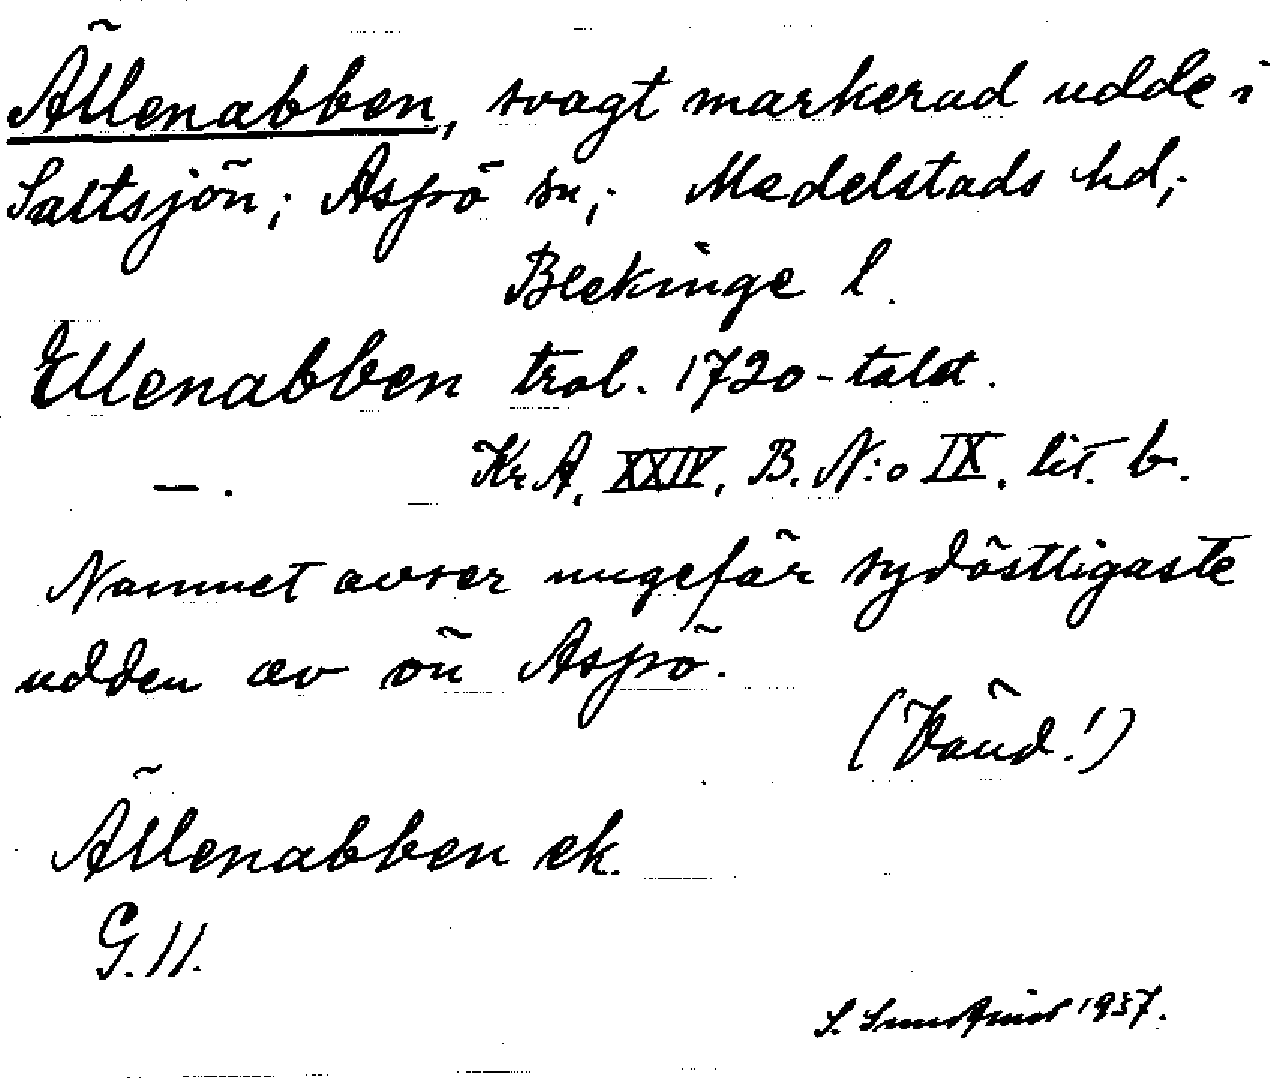 Ällenabben, svagt markerad udde i
Saltsjön; Aspö sn; Medelstads hd;
Blekinge l.
Ellenabben trol. 1720-talet.
—. — Kr.A. XXIV. B. N:o IX. lit. b.
Namnet avser ungefär sydöstligaste
udden av ön Aspö.
(Vänd!)
Ällenabben ek.
G. 11.
S. 1937.